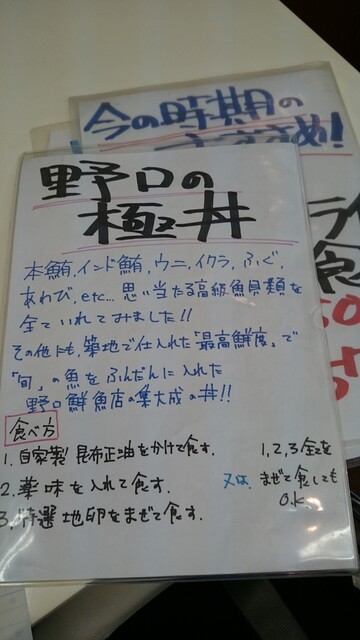 今の時期の
すすめ!
野口の
極丼
本鮪,インド鮪,ウニ,イクラ,ふぐ,
あわび,etc…思い当たる高級魚貝類を
全ていれてみました!!
その他にも,築地で仕入れた「最高鮮度」で
「旬」の魚をふんだんに入れた
野口鮮魚店の集大成の丼!!
食べ方
1.自家製!昆布正油をかけて食す.
2.薬味を入れて食す.
3.特選地卵をまぜて食す.
又は
1,2,3全てを
まぜて食しても
O.K.